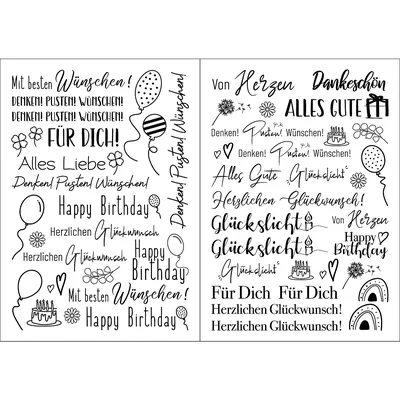 Mit besten Wünschen!
DENKEN! PUSTEN! WÜNSCHEN!
DENKEN! PUSTEN! WÜNSCHEN!
FÜR DICH!
Alles Liebe
Denken! Pusten! Wünschen!
Denken! Pusten! Wünschen!
Happy Birthday
Herzlichen Glückwunsch
Herzlichen Glückwunsch
Happy Birthday
Mit besten Wünschen!
Happy Birthday
Von Herzen
Dankeschön
ALLES GUTE
Denken! Pusten! Wünschen!
Denken! Pusten! Wünschen!
Alles Gute
Glückslicht
Herzlichen Glückwunsch!
Glückslicht
Von Herzen
Glückslicht
Happy Birthday
Glückslicht
Für Dich Für Dich
Herzlichen Glückwunsch!
Herzlichen Glückwunsch!